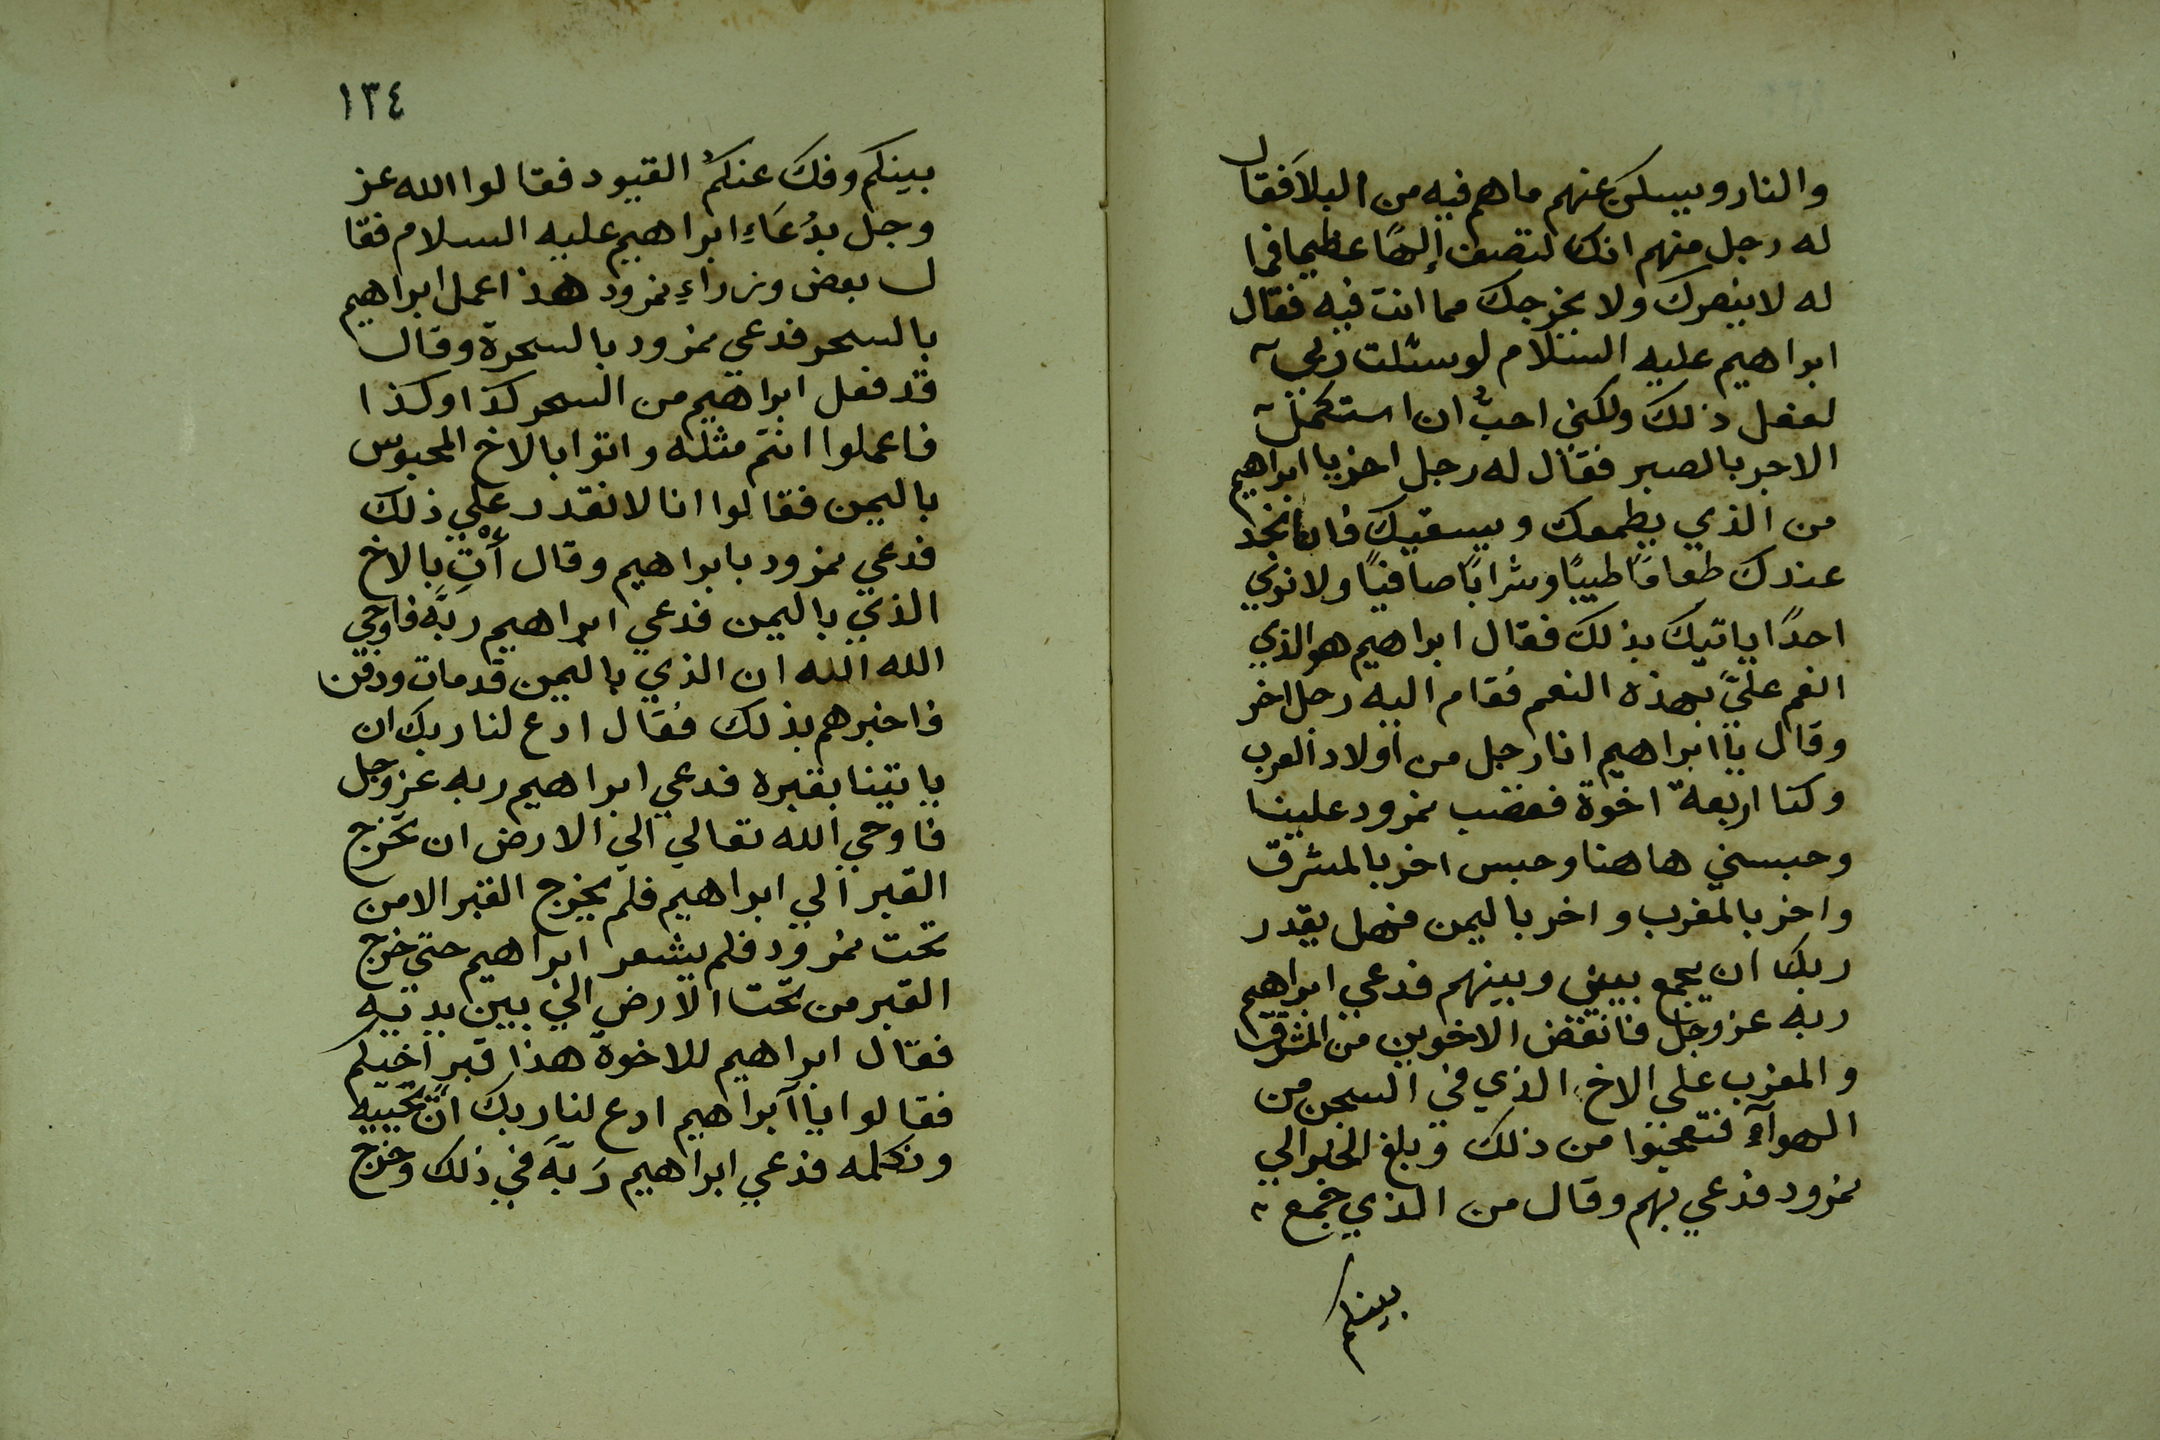 والنار ويسكن عنهم ما هم فيه من البلآ فقال
له رجل منهم انك لتصف إلهًا عظيما فما
له لا ينصرك ولا يخرجك مما انت فيه فقال
ابراهيم عليه السلام لو سئلت ربي
لفعل ذلك ولكني احبُّ ان استكمل
الاجر بالصبر فقال له رجل اخر يا ابراهيم
من الذي يطعمك ويسقيك فانا نجد
عندك طعامًا طيبًا وشرابًا صافيًا ولا نري
احدًا ياتيك بذلك فقال ابراهيم هو الذي
انعم عليَّ بهذه النعم فقام اليه رجل اخر
وقال يا ابراهيم انا رجل من اولاد العرب
وكنا اربعة اخوة فغضب نمرود علينا
وحبسني هاهنا وحبس اخر بالمشرق
واخر بالمغرب واخر باليمن فهل يقدر
ربك ان يجمع بيني وبينهم فدعي ابراهيم
ربه عز وجل فانقض الاخوين من المشرق
والمغرب على الاخ الذي في السجن من
الهوآء فتعجبوا من ذلك وبلغ الخبر الي
نمرود فدعي بهم وقال من الذي جمع
بينكم
١٣٤
بينكم وفك عنكم القيود فقالوا الله عز
وجل بدُعَاءِ ابراهيم عليه السلام فقا
ل بعض وزراءِ نمرود هذا عمل ابراهيم
بالسحر فدعي نمرود بالسحرة وقال
قد فعل ابراهيم من السحر كذا وكذا
فاعملوا انتم مثله واتوا بالاخ المحبوس
باليمن فقالوا انا لا نقدر علي ذلك
فدعي نمرود بابراهيم وقال آتِ بالاخ
الذي باليمن فدعي ابراهيم ربَّه فاوحي
الله الله ان الذي باليمن قد مات ودفن
فاخبرهم بذلك فقال ادع لنا ربك ان
ياتينا بقبره فدعي ابراهيم ربه عز وجل
فاوحي الله تعالي الي الارض ان تخرج
القبر الي ابراهيم فلم يخرج القبر الا من
تحت نمرود فلم يشعر ابراهيم حتي خرج
القبر من تحت الارض الي بين يديه
فقال ابراهيم للاخوة هذا قبر اخيكم
فقالوا يا آبراهيم ادع لنا ربك ان يحييه
ونكلمه فدعي ابراهيم رَبَّه في ذلك وخرج